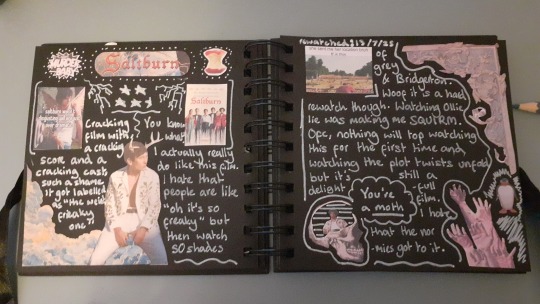 MURDER
Saltburn
Saltburn
Cracking
film with
a cracking
score and a
cracking cast
such a shame
it got labelled
as "the weird
freaky,
one
You know
what
I actually really
do like this film.
I hate that
people are like
"oh it's so
freaky" but
then watch
50 shades
rewatched: 13/7/25
of
grey
& Bridgerton.
Woof it's a hard
rewatch though. Watching Ollie
lie was making me SQUIRM.
Ope, nothing will top watching
this for the first time and
watching the plot twists unfold
but it's still a
delight-full
film.
I hate
that the nor
-mies got to it.
You're
a moth